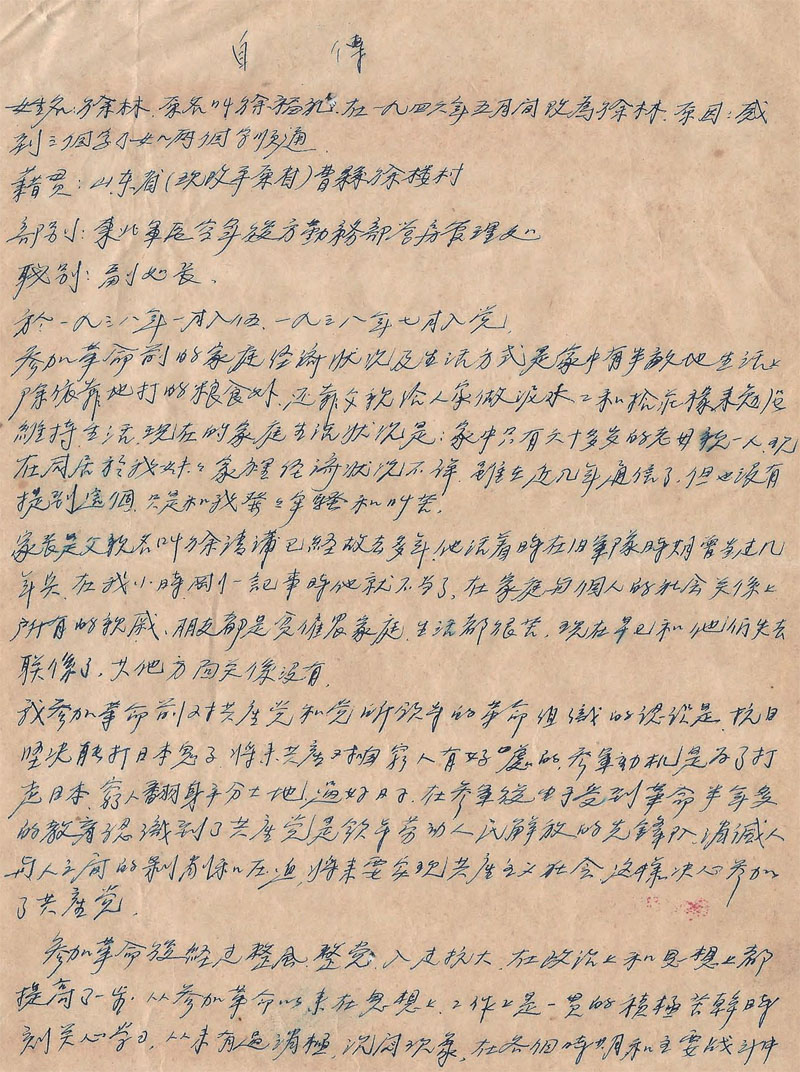 自 傳
姓名:徐林.原名叫徐福礼,在一九四六年五月间改為徐林.原因:感
到三個字不如两個字顺通.
藉贯:山东省(现改平原省)曹縣徐楼村
部别:東北軍区空军後方勤務部营房管理处
职别:副处长.
於一九三八年一月入伍.一九三八年七月入党.
参加革命前的家庭经濟状况及生活方式是家中有半畝地生活上
除依靠地打的粮食外,还靠父親给人家做泥水工和拾庄稼来勉强
維持生活.现在的家庭生活状况是:家中只有六十多岁的老母親一人,现
在同居於我妹妹家裡经濟状况不详.雖在近几年通信了,但也没有
提到這個.只是和我發發牢騷和叫苦.
家长是父親名叫徐清蒲已经故去多年.他活着時在旧軍隊時期曾当过几
年兵.在我小時剛一記事時他就不当了.在家庭与個人的社会关係上
所有的親戚、朋友都是雇農家庭.生活都很苦.现在早已和他们失去
联係了,其他方面关係没有.
我参加革命前对共產党和党所领导的革命组織的認识是:抗日
坚决能打日本鬼子.将来共產对咱穷人有好處的.参軍动机是为了打
走日本.窮人翻身平分土地,過好日子.在参軍後由于受到革命半年多
的教育認識到了共產党是领导劳动人民解放的先锋队,消滅人
与人之间的剥削和压迫,将来要实现共產主义社会.这样决心参加
了共產党.
参加革命後经过整風.整党.入过抗大.在政治上和思想上都
提高了一步.从参加革命以来在思想上、工作上是一贯的積極苦幹時
刻关心学习,从未有過消極,沉闷现象,在各個時期和主要战斗中